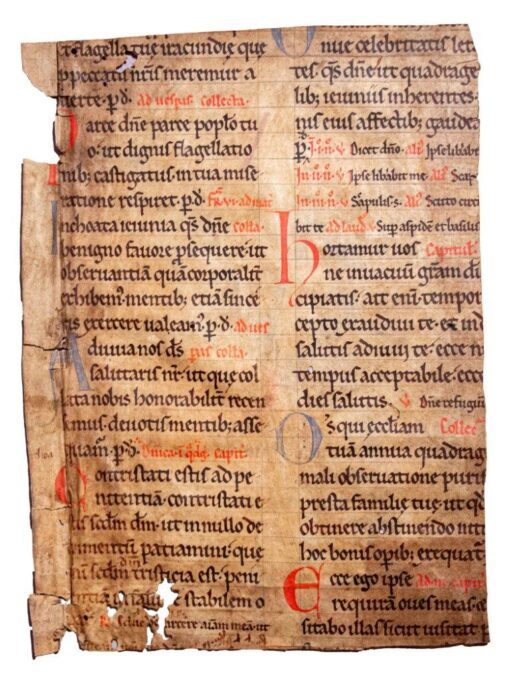 t flagellatuȩ iracundie que
p peccatis nr̄is meremur a
uerte · p d̄. Ad uesꝑas collecta.
Parce dn̄e parce populo tu
o · ut dignis flagellatio
nib; castigatus in tua mise
ratione respiret · p d̄. fr̄ vi ad mat
Inchoata ieiunia qs dn̄e colla.
benigno fauore ꝓsequere · ut
obseruantiā quā corporalit̄
exhibem᷒ · mentib; etiā since
ris exercere ualeam᷒ · p d̄ · ad ues
Adiuua nos d̄s colla.
salutaris nr̄ · ut que col
lata nobis honorabilit̄ recen
samus · deuotis mentib; asse
quam̄ · p d̄. Dn̄ica i q̄ag. capit̄.
Contristati estis ad pe
nitentiā · contristati e
stis scdm dm̄ · ut in nullo de
trimentū patiamini · que
enī scdm dm̄ tristicia est · peni
stabilem o
parcere
One celebritatis
tes · qs dn̄e · ut quadrage
lib; ieiuniis inherentes
nis eius affectib; gaudea
Dicet dn̄o. Ipse libabit
Ipse libabit me. Scap
Scapulis s. Scuto circū
bit te ad laud̄ Sup aspidē et basilis
Hortamur uos Capitul᷒
ne in uacuū gr̄am dī
cipiatis · ait enī · tempor
cepto exaudiui te · et in d
salutis adiuui te · ecce n
tempus acceptabile · ecce
dies salutis. Dn̄e refugiū
Ds qui eccl̄iam Collec
tuā annua quadrag
mali obseruatione puri
presta familiȩ tuȩ · ut qd
obtinere abstinendo nit
hoc bonis opib; exequat̄
Ecce ego ipse ad capit̄
requirā oues meas
sitabo illas sicut uisitat